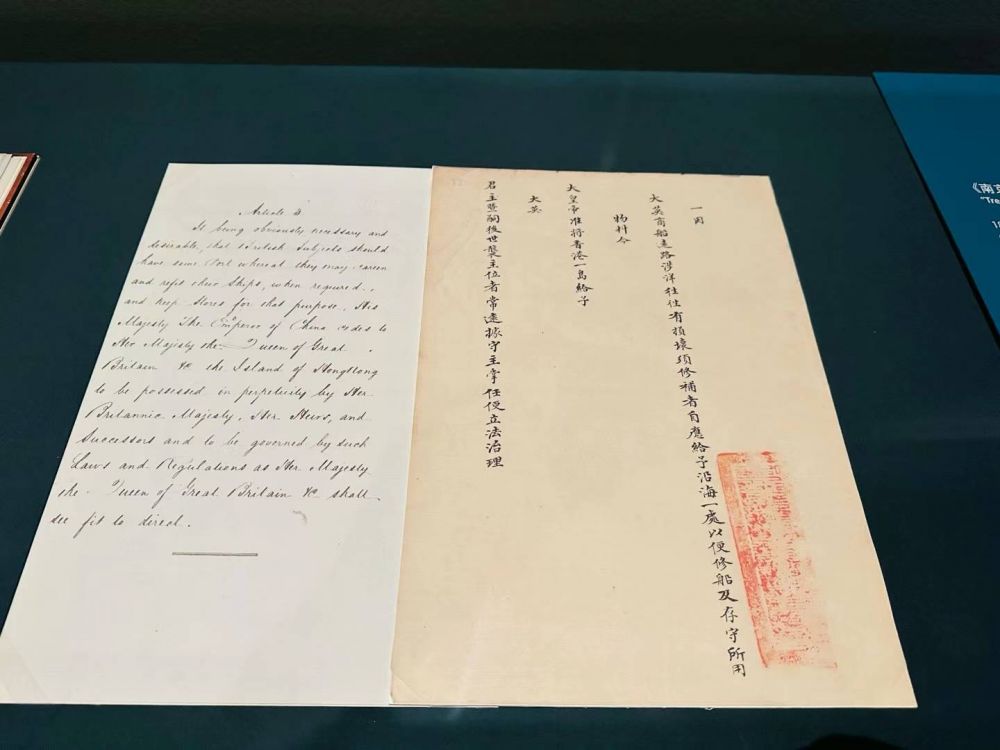 Article 3
It being obviously necessary and
desirable, that British Subjects should
have some Port whereat they may careen
and refit their Ships, when required,
and keep Stores for that purpose, His
Majesty The Emperor of China cedes to
Her Majesty the Queen of Great
Britain &c the Island of HongKong
to be possessed in perpetuity by Her
Britannic Majesty, Her Heirs, and
Successors and to be governed by such
Laws and Regulations as Her Majesty
the Queen of Great Britain &c shall
see fit to direct.
一因
大英商船遠路涉洋往往有損壞須修補者自應給予沿海一處以便修船及存守所用
物料今
大皇帝准將香港一島給予
大英
君主暨嗣後世襲主位者常遠據守主掌任便立法治理
《南京
"Tre